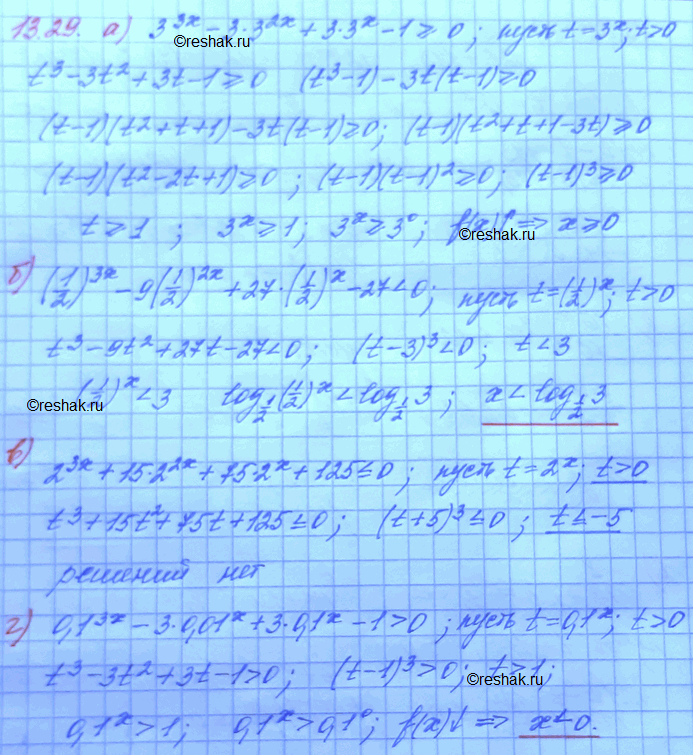 13.29. а) 3^{3x} - 3·3^{2x} + 3·3^x - 1 ≥ 0; пусть t=3^x; t>0
©reshak.ru
t³-3t²+3t-1≥0 (t³-1)-3t(t-1)≥0
(t-1)(t²+t+1)-3t(t-1)≥0; (t-1)(t²+t+1-3t)≥0
(t-1)(t²-2t+1)≥0; (t-1)(t-1)²≥0; (t-1)³≥0
t≥1; 3^x≥1; 3^x≥3⁰; f(x)↑ => x≥0
©reshak.ru
б) (1/2)^{3x} - 9(1/2)^{2x} + 27·(1/2)^x - 27<0; пусть t=(1/2)^x; t>0
t³-9t²+27t-27<0; (t-3)³<0; t<3
(1/2)^x<3 log_{1/2}(1/2)^x < log_{1/2}3; x<log_{1/2}3
©reshak.ru
в)
2^{3x}+15·2^{2x}+75·2^x+125≤0; пусть t=2^x; t>0
t³+15t²+75t+125≤0; (t+5)³≤0; t≤-5
решений нет
г) 0,1^{3x}-3·0,01^x+3·0,1^x-1>0; пусть t=0,1^x; t>0
t³-3t²+3t-1>0; (t-1)³>0; t>1;
©reshak.ru
0,1^x>1; 0,1^x>0,1⁰; f(x)↓ => x<0.